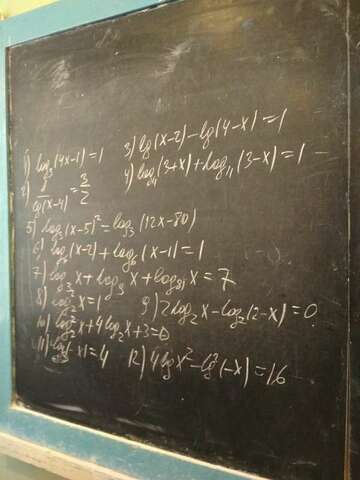 1) log₃(4x-1)=1 3) lg(x-2)-lg(4-x)=1
2) 8^lg(x-4)=3/2 4) log₁₁(3+x)+log₁₁(3-x)=1
5) log₃(x-5)²=log₃(12x-80)
6) log₆(x-2)+log₆(x-1)=1
7) log₃x+log₉x+log₈₁x=7
8) log₂²x=1 9) 2log₂x-log₂(2-x)=0
10) log₂²x+4log₂x+3=0
11) (-x)=4 12) 4lgx²-lg²(-x)=16